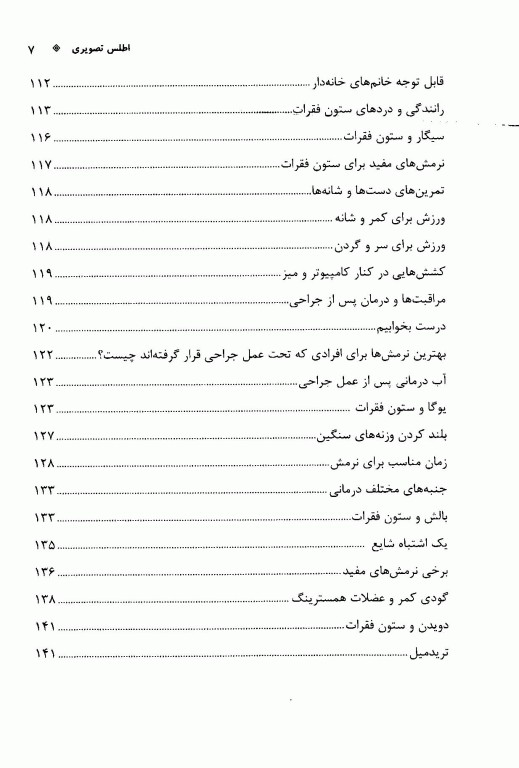 اطلس تصویری ❈ ۷
قابل توجه خانم‌های خانه‌دار ........ ۱۱۲
رانندگی و دردهای ستون فقرات ........ ۱۱۳
سیگار و ستون فقرات ........ ۱۱۶
نرمش‌های مفید برای ستون فقرات ........ ۱۱۷
تمرین‌های دست‌ها و شانه‌ها ........ ۱۱۸
ورزش برای کمر و شانه ........ ۱۱۸
ورزش برای سر و گردن ........ ۱۱۸
کشش‌هایی در کنار کامپیوتر و میز ........ ۱۱۹
مراقبت‌ها و درمان پس از جراحی ........ ۱۱۹
درست بخوابیم ........ ۱۲۰
بهترین نرمش‌ها برای افرادی که تحت عمل جراحی قرار گرفته‌اند چیست؟ ........ ۱۲۲
آب درمانی پس از عمل جراحی ........ ۱۲۳
یوگا و ستون فقرات ........ ۱۲۳
بلند کردن وزنه‌های سنگین ........ ۱۲۷
زمان مناسب برای نرمش ........ ۱۲۸
جنبه‌های مختلف درمانی ........ ۱۳۳
بالش و ستون فقرات ........ ۱۳۳
یک اشتباه شایع ........ ۱۳۵
برخی نرمش‌های مفید ........ ۱۳۶
گودی کمر و عضلات همسترینگ ........ ۱۳۸
دویدن و ستون فقرات ........ ۱۴۱
تریدمیل ........ ۱۴۱